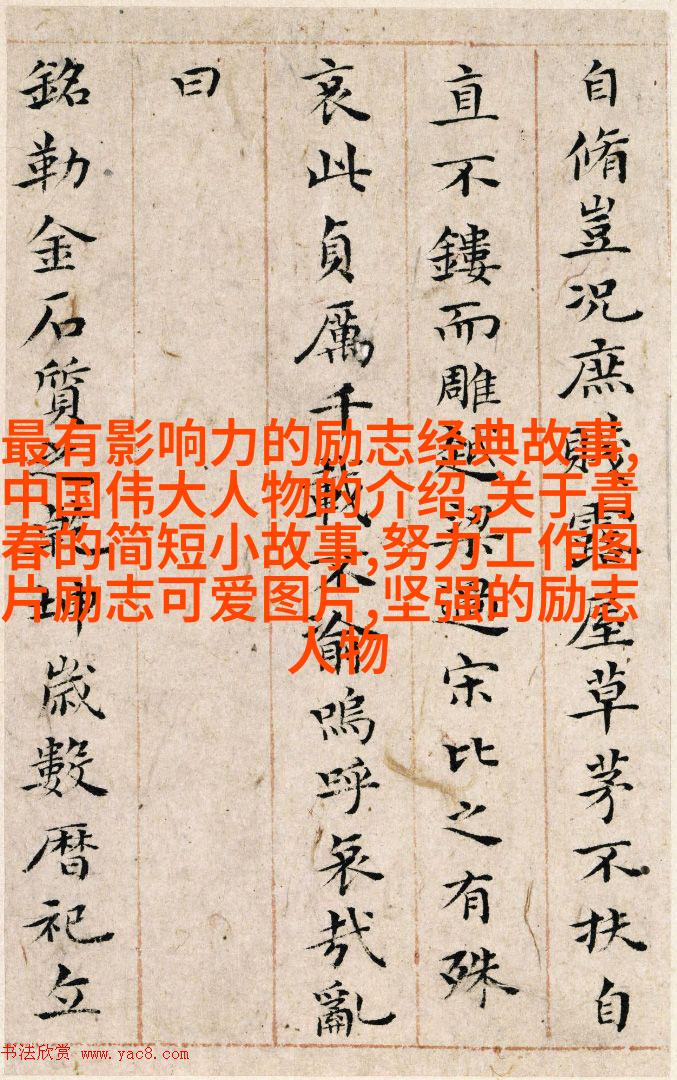 自脩豈況庶賤露屋草茅不扶自
直不鏤而雕越梁過宋比之有殊
哀此貞厲千載不渝嗚呼哀哉亂
曰
銘勒金石質之乾坤歲數曆祀立
最有影响力的励志经典故事,
中国伟大人物的介绍,关于青
春的简短小故事,努力工作图
片励志可爱图片,坚强的励志
人物
书法欣赏 www.yac8.com